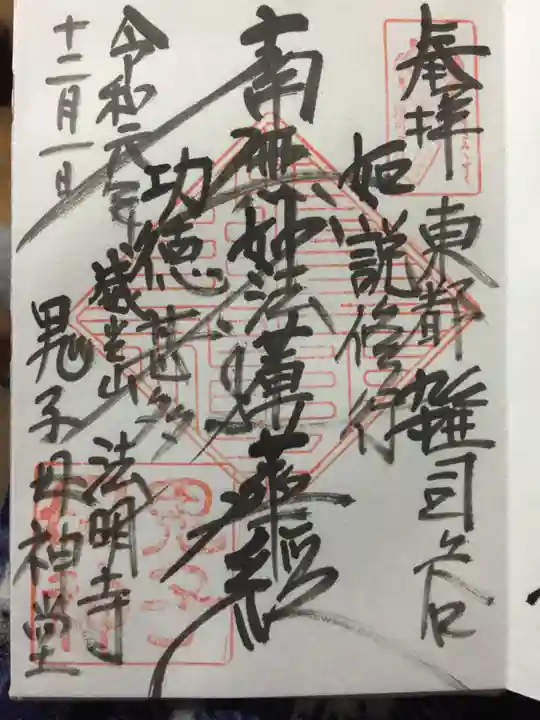 奉拝
東都 雑司ケ谷
如説修行
南無妙法蓮華経
功徳甚多
令和元年
十二月一日
威光山 法明寺
鬼子母神堂